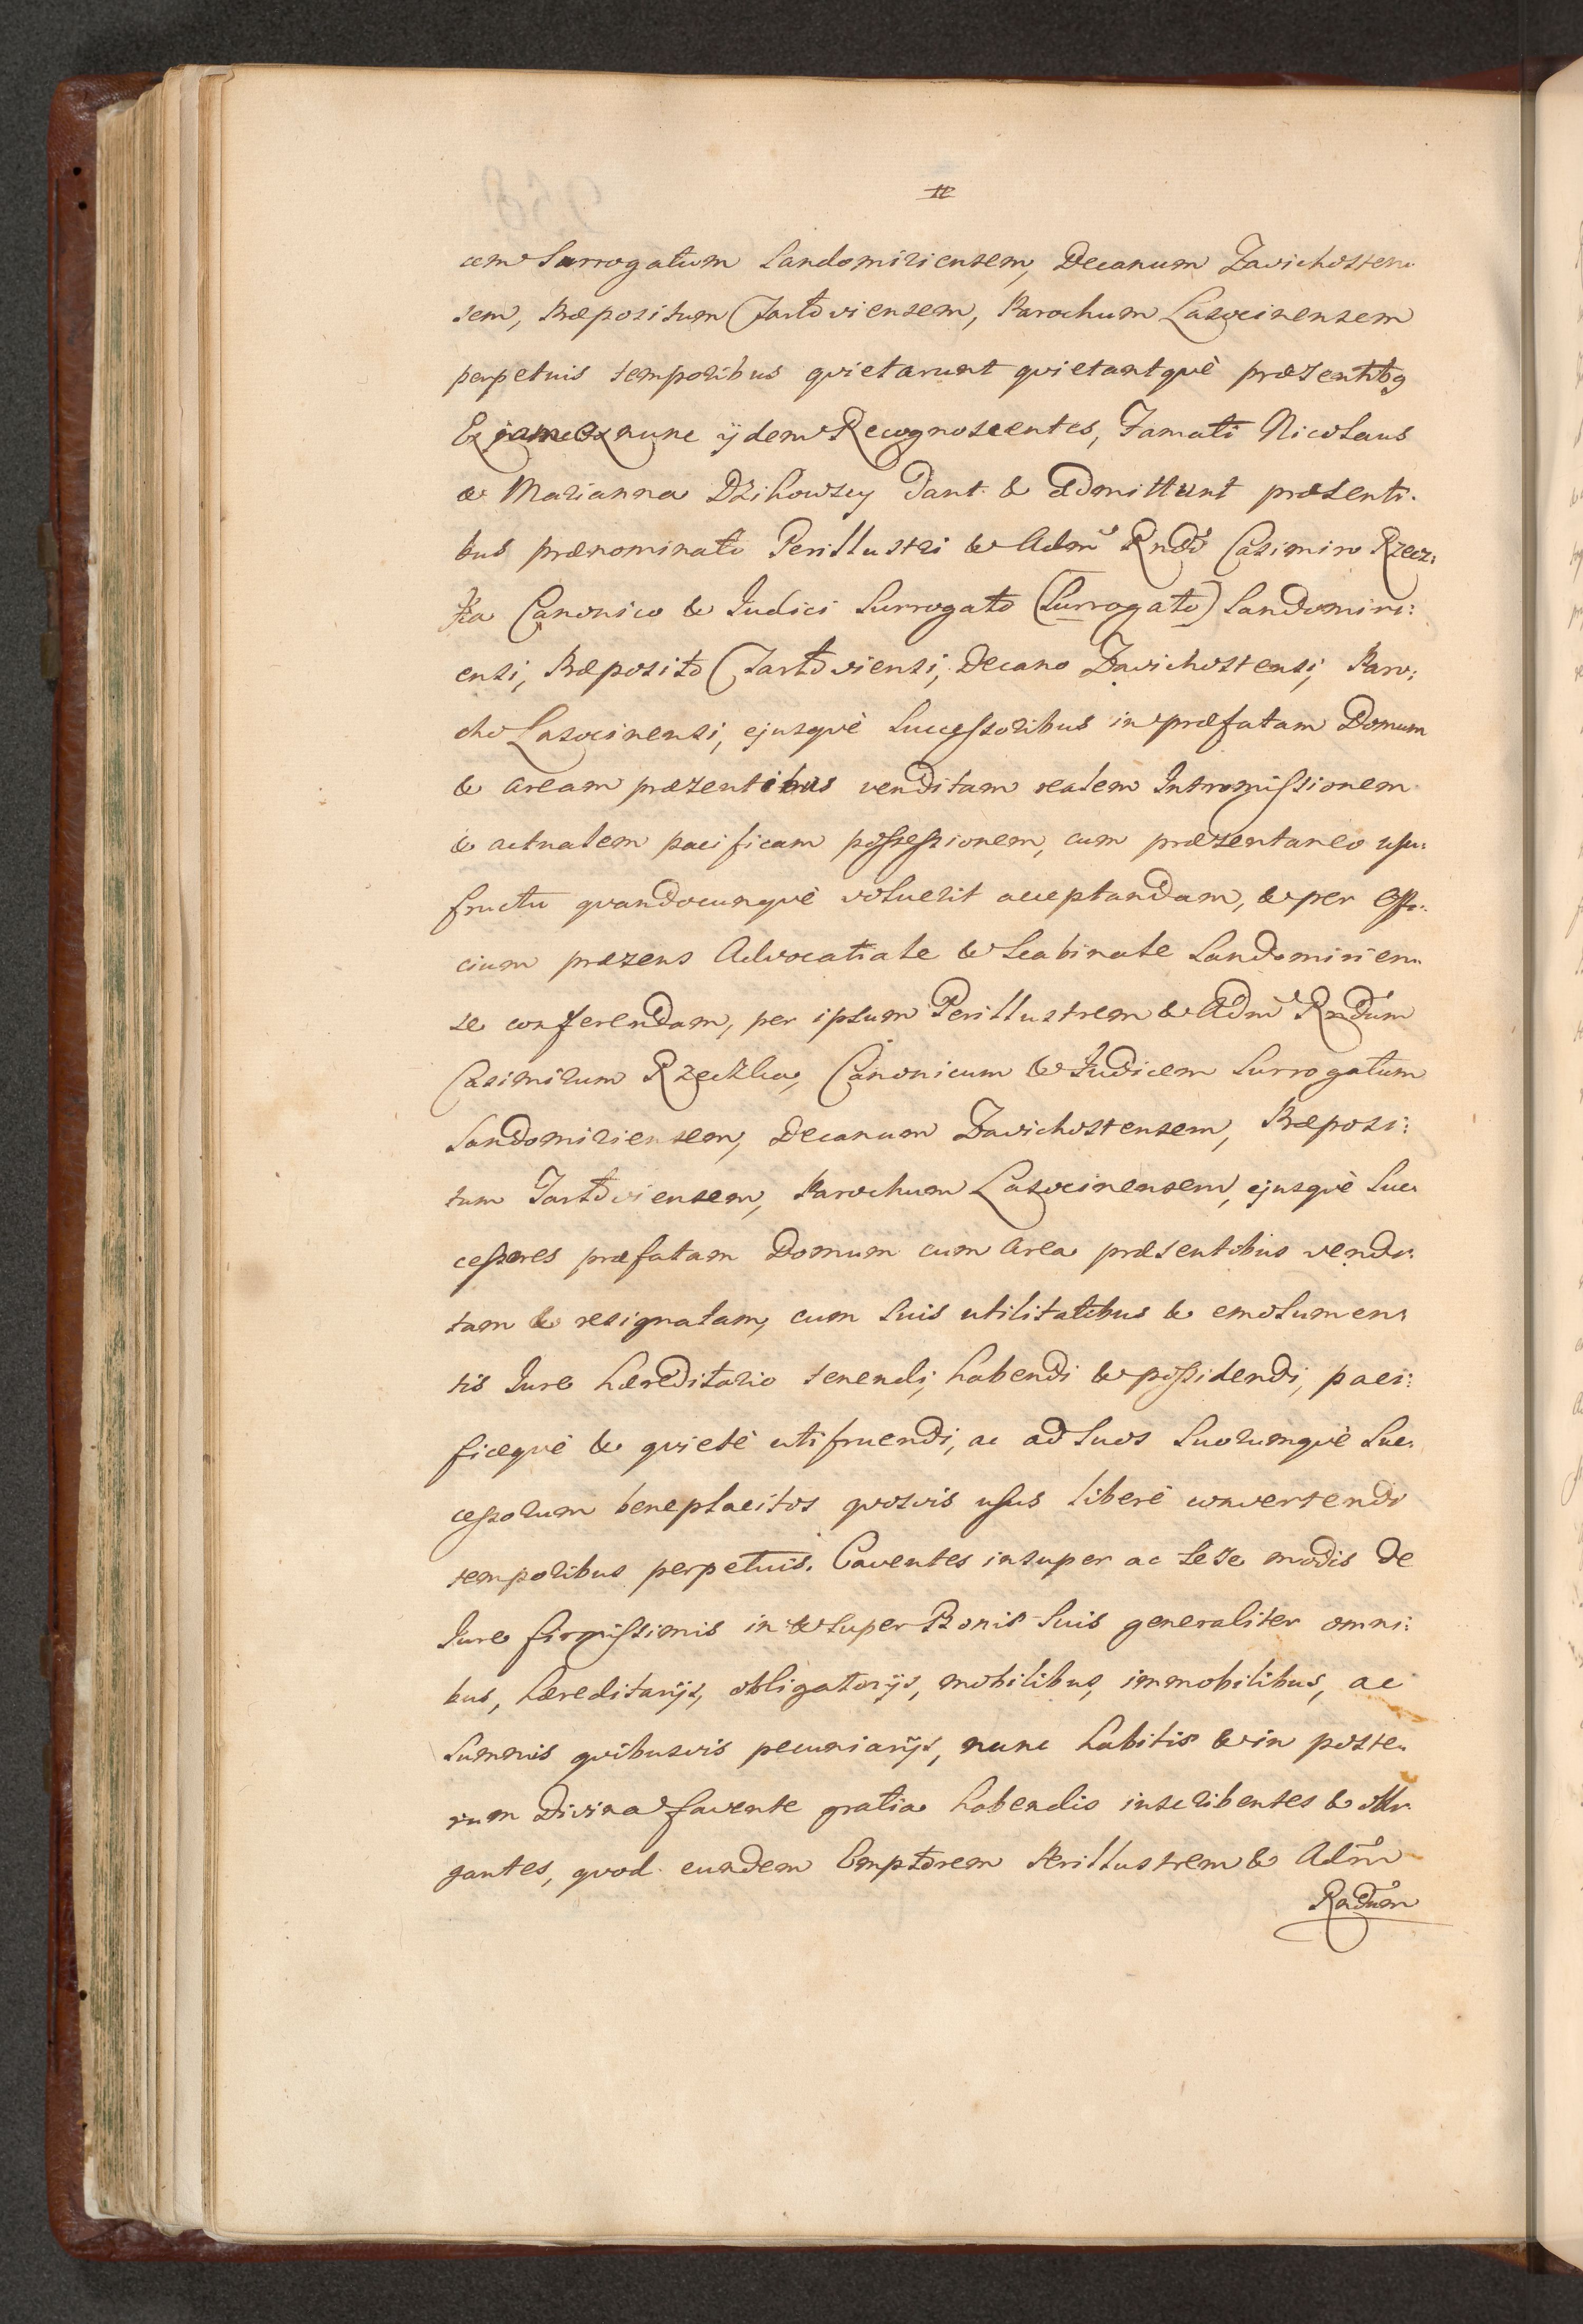 cem Surrogatum Sandomiriensem, Decanum Zavichosten:
sem, Præpositum Tarłoviensem, Parochum Lasocinensem
perpetuis temporibus qvietarunt qvietantqvè præsentibg
Ex jam ex nunc ijdem Recognoscentes, Famati Nicolaus
& Marianna Dzikowscy dant & admittunt præsenti:
bus prænominato Perillustri & Adm̃ Rndo Casimiro Rzecz:
ka Canonico & Iudici Surrogato (Surrogato) Sandomiri:
ensi, Præposito Tarłoviensi, Decano Zavichostensi, Paro:
cho Lasocinensi, ejusqvè Successoribus in præfatam Domum
& aream præsentibus venditam realem Intromissionem
& actualem pacificam possessionem, cum præsentaneo usu:
fructu qvandocunqvè voluerit acceptandam, & per Offi:
cium præsens Advocatiale & Scabinale Sandomirien:
se conferendam, per ipsum Perillustrem & Adm̃ Rndum
Casimirum Rzeczka, Canonicum & Iudicem Surrogatum
Sandomiriensem, Decanum Zavichostensem, Præposi:
tum Tarłoviensem, Parochum Lasocinensem, ejusqvè Suc:
cessores præfatam Domum cum area præsentibus vendi:
tam & resignatam, cum suis utilitatibus & emolumen:
tis Iure hæreditario tenendi, habendi & possidendi, paci:
ficeqvè & qvietè utifruendi, ac ad suos suorumqvè Suc:
cessorum beneplacitos qvosvis usus liberè convertendi
temporibus perpetuis. Caventes insuper ac sese modis de
Iure firmissimis in & super Bonis suis generaliter omni:
bus, hæreditarijs, obligatorijs, mobilibus, immobilibus, ac
Summis qvibusvis pecuniarijs, nunc habitis & in poste:
rum divina favente gratia habendis inscribentes & obli:
gantes, qvod eundem Emptorem Perillustrem & Adm̃
Rndum